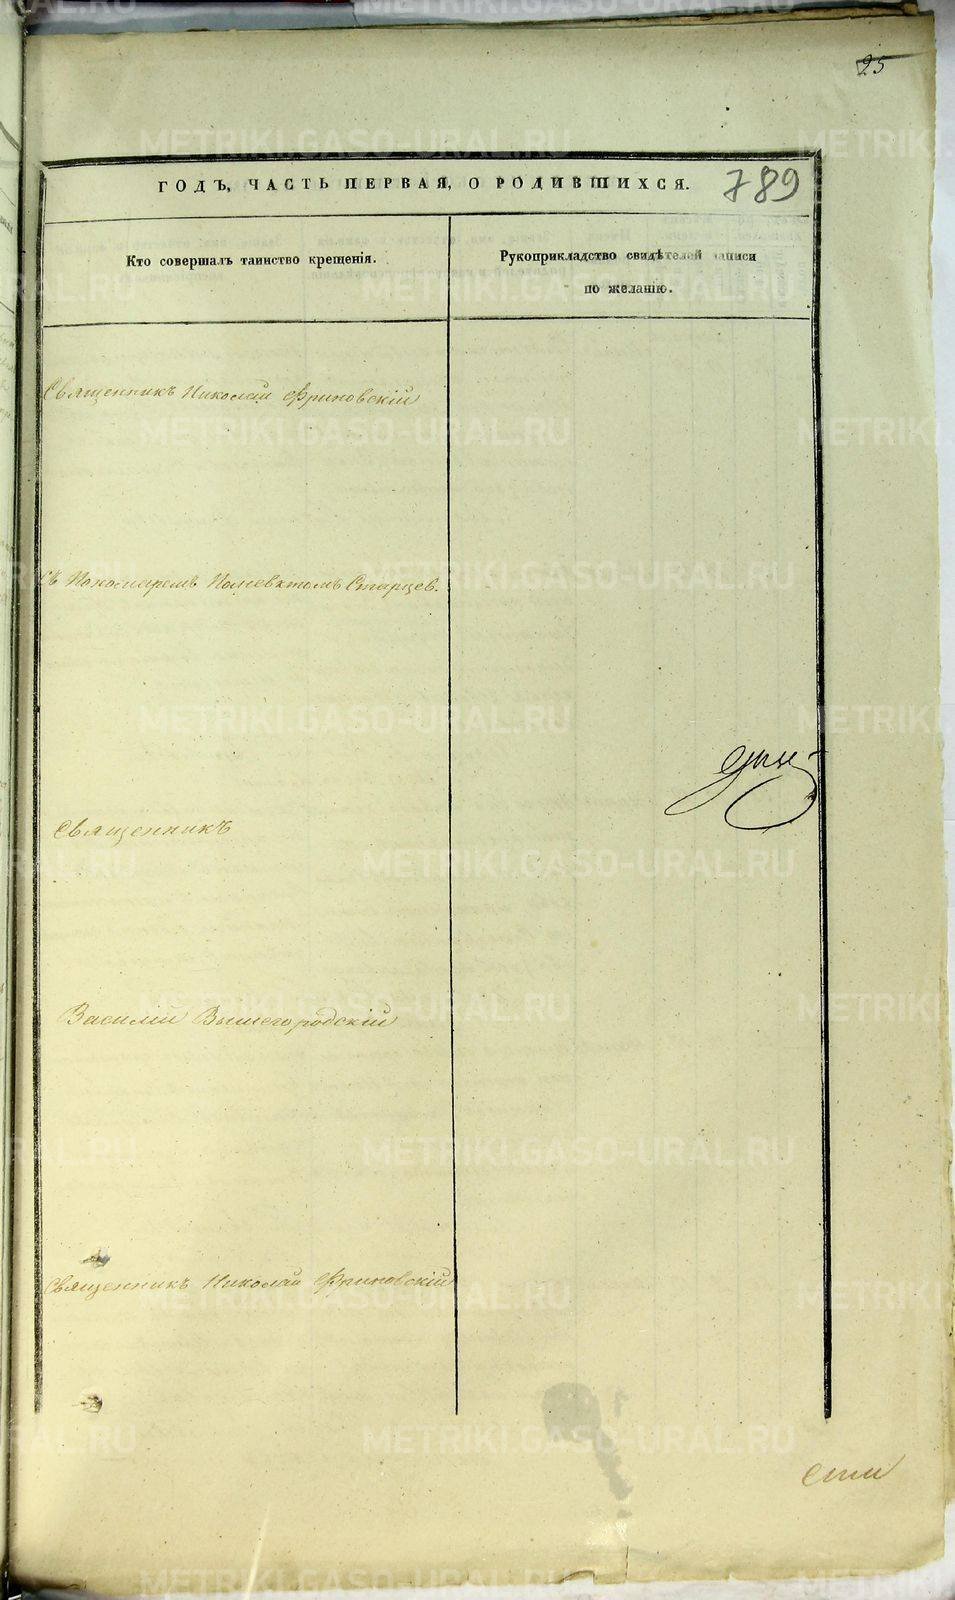 25
ГОДЪ, ЧАСТЬ ПЕРВАЯ, О РОДИВШИХСЯ.
789
Кто совершалъ таинство крещенія.
Рукоприкладство свидѣтелей записи
по желанію.
Священникъ Николай Фриновскій
Съ Пономаремъ Полиевктомъ Старцев.
Священникъ
Василій Вышегородскій
Священникъ Николай Фриновскій
METRIKI.GASO-URAL.RU